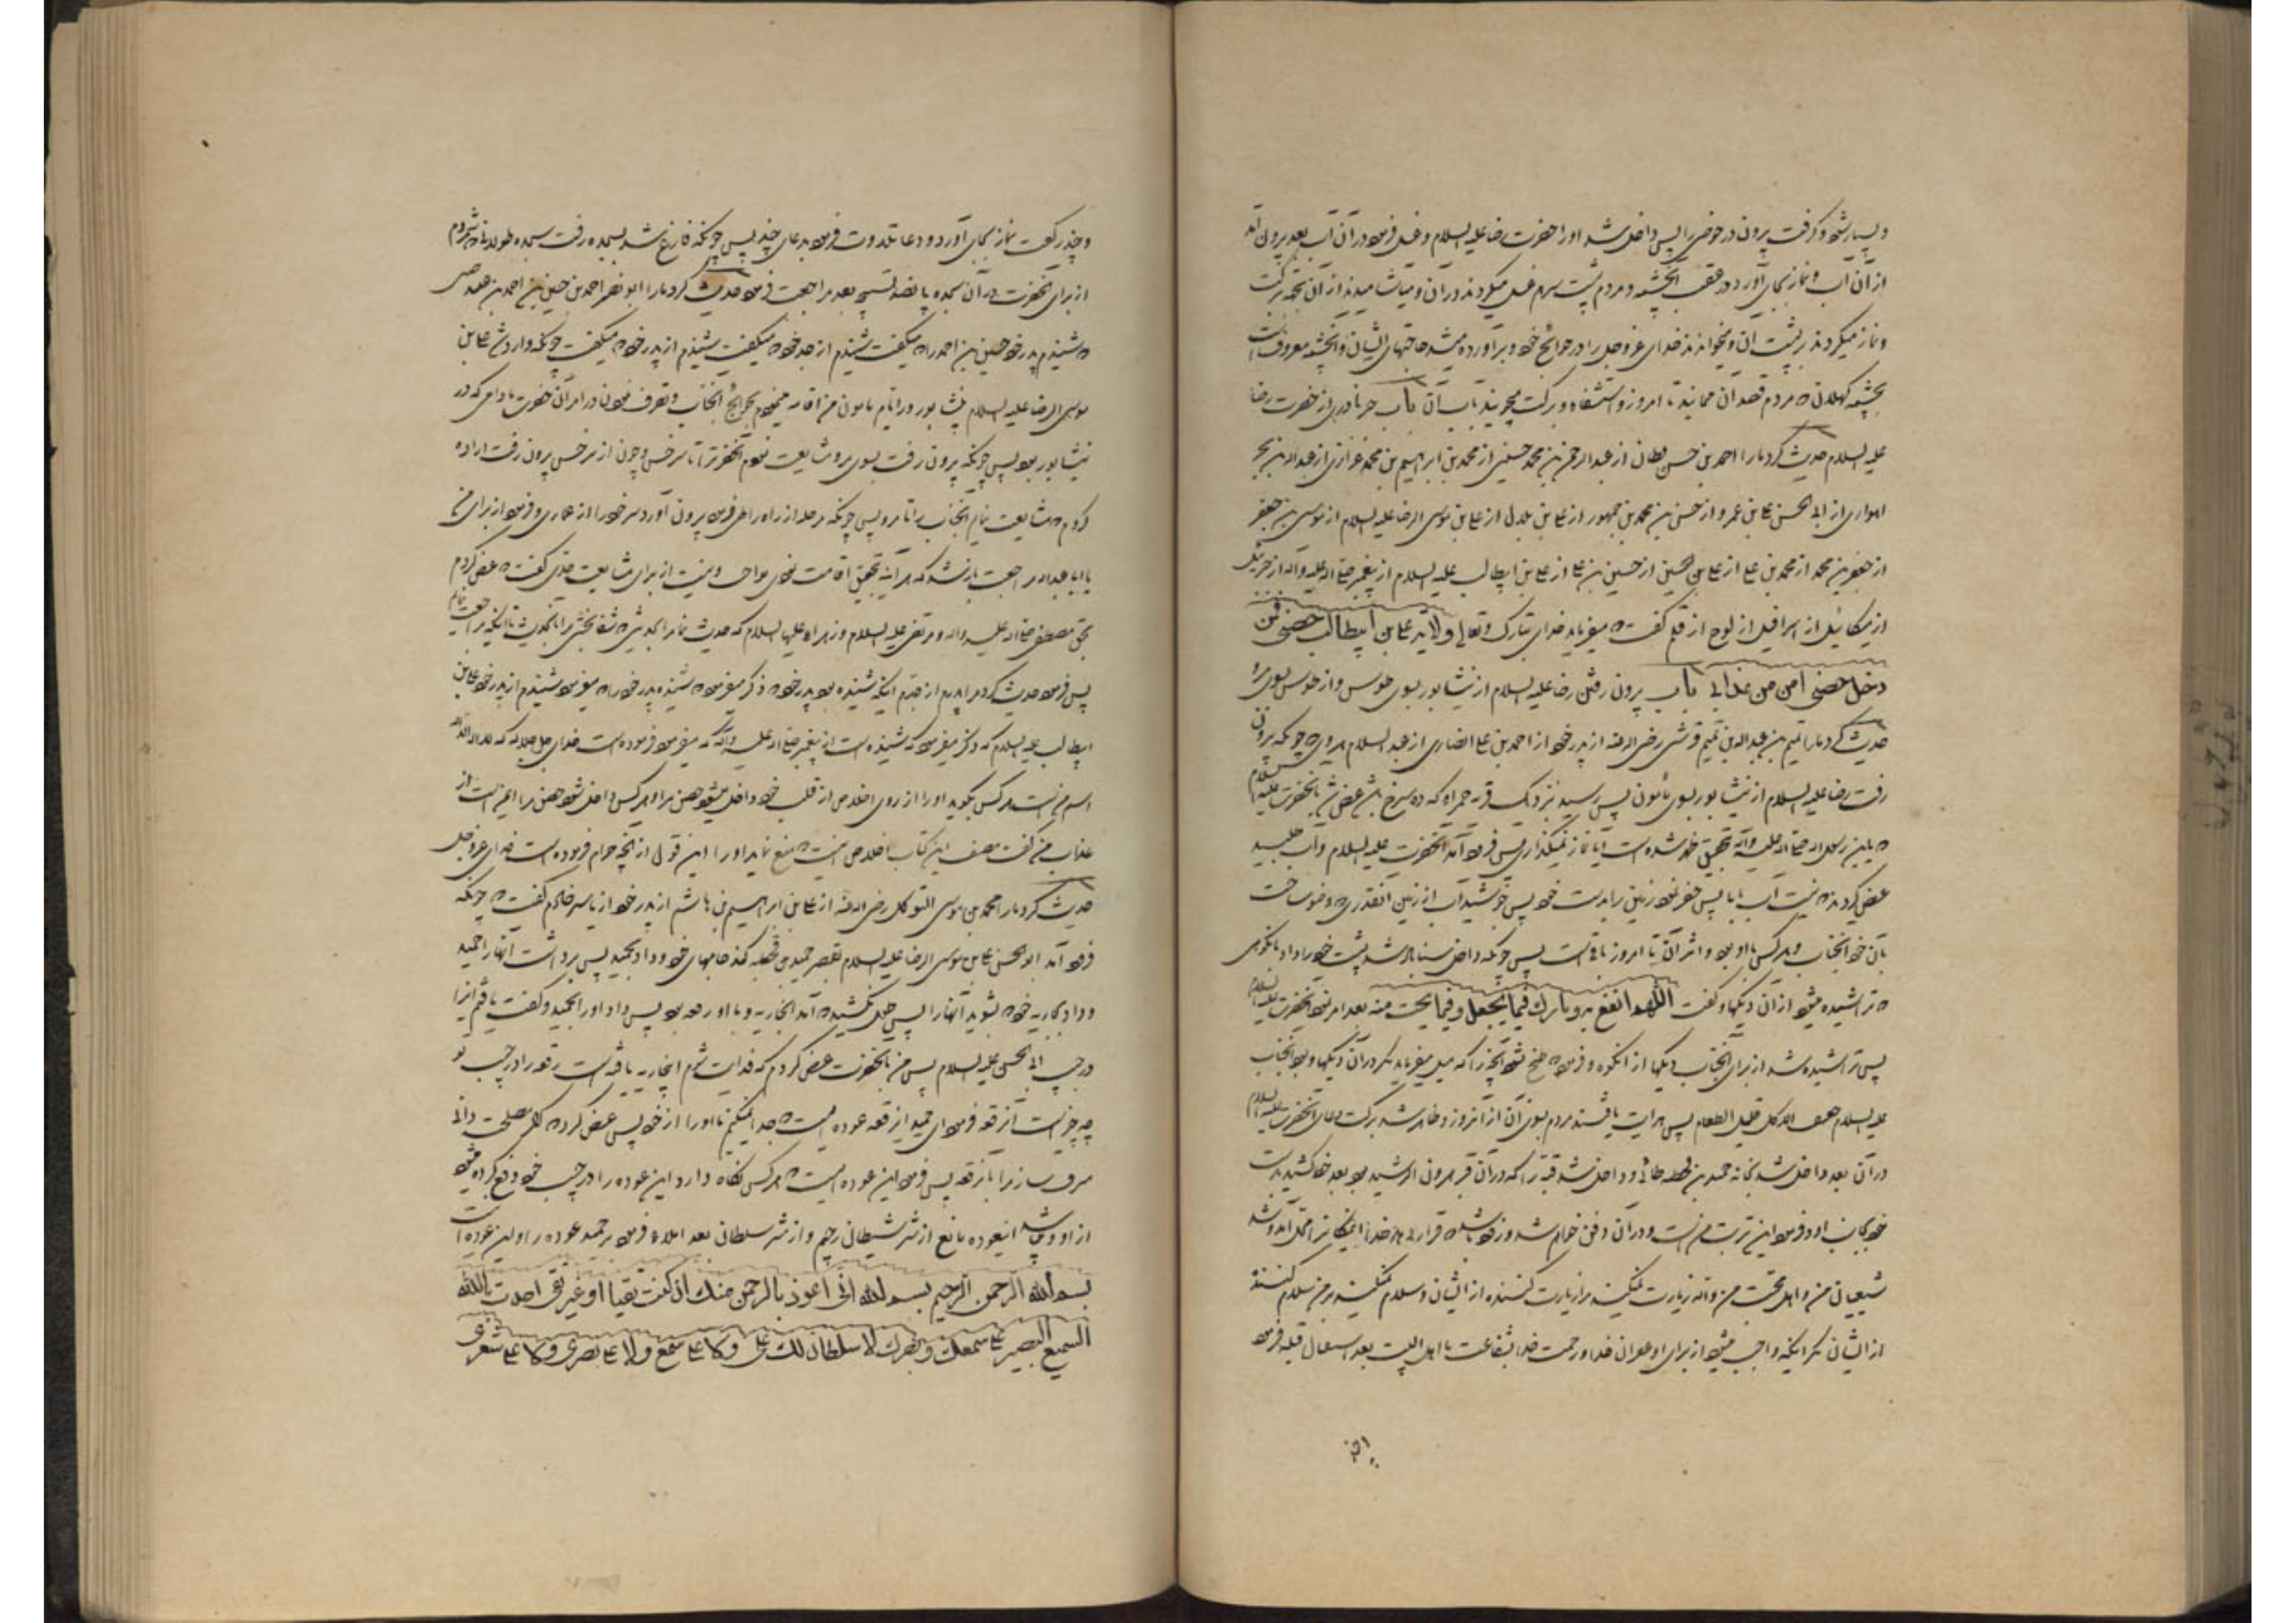 و بسیار شد و کرفت بیرون در حوضی پس داخل شد اورا حضرت رضا علیه السلام و غسل فرمود در آن آب بعد بیرون آمد
از آن آب و نماز بجای آورد در عقب آنچشمه و مردم پشت سرهم غسل میکردند در آن و میآشامیدند از آن بجهة برکت
و نماز میکردند بر پشت آن و میخواندند خدای عزوجل را در حوائج خود و برآورده میشد حاجتهای ایشان و آنچشمه معروفست
بچشمه کهلان که مردم قصد آن مینمایند تا امروز و استشفاء و برکت میجویند بآب آن باب خبر نادری از حضرت رضا
علیه السلام حدیث کرد مارا احمد بن حسن قطان از عبدالرحمن بن محمد حسینی از محمد بن ابراهیم بن محمد فزاری از عبدالله بن بحر
اهوازی از ابی الحسن علی بن عمرو از حسن بن محمد بن جمهور از علی بن بلال از علی بن موسی الرضا علیه السلام از موسی بن جعفر
از جعفر بن محمد از محمد بن علی از علی بن الحسین از حسین بن علی از علی بن ابیطالب علیه السلام از پیغمبر صلی الله علیه وآله از جبرئیل
از میکائیل از اسرافیل از لوح از قلم گفت که میفرماید خدای تبارک وتعالی ولایة علی بن ابیطالب حصنی فمن
دخل حصنی امن من عذابی باب بیرون رفتن رضا علیه السلام از نیشابور بسوی طوس و از طوس بسوی مرو
حدیث کرد مارا تمیم بن عبدالله بن تمیم قرشی رضی الله عنه از پدر خود از احمد بن علی انصاری از عبدالسلام هروی که چونکه بیرون
رفت رضا علیه السلام از نیشابور بسوی مأمون پس رسید نزدیک قریه حمراء که ده سرخ باشد عرض شد بآنحضرت علیه السلام
که یابن رسول الله صلی الله علیه وآله بتحقیق ظهر شده است آیا نماز نمیگذاری پس فرود آمد آنحضرت علیه السلام و آب طلبید
عرض کردند که نیست آب با ما پس حفر نمود زمین را بدست خود پس جوشید آب از زمین آنقدری که وضو ساخت
بآن خود آنجناب و هر کس با او بود و اثر آن تا امروز باقیست پس چونکه داخل سناباد شد پشت خود را داد بانکوهی
که تراشیده میشود از آن دیکها و گفت اللهم انفع به و بارک فیما یجعل و فیما ینحت منه بعد امر نمود آنحضرت علیه السلام
پس تراشیده شد از برای آنجناب دیکها از انکوه و فرمود که طبخ نشود آنچیزرا که میل میفرماید مگر در آن دیکها و بود آنجناب
علیه السلام خفیف الاکل قلیل الطعام پس هدایت یافتند مردم بسوی آن از آنروز و ظاهر شد برکت دعای آنحضرت علیه السلام
در آن بعد داخل شد بخانه حمید بن قحطبه طائی و داخل شد قبه را که در آن قبر هرون الرشید بود بعد خط کشید بدست
خود بجانب او و فرمود این تربت منست و در آن دفن خواهم شد و زود باشد که قرار بدهد خدا اینمکان را محل آمد و شد
شیعیان من و اهل محبت من والله زیارت نمیکند مرا زیارت کننده از ایشان و سلام نمیکند بر من سلام کننده
از ایشان مگر اینکه واجب میشود از برای او غفران خدا و رحمت خدا بشفاعت ما اهل البیت بعد استقبال قبله فرمود
و چند رکعت نماز بجای آورد و دعا تلاوت فرمود بدعای چند پس چونکه فارغ شد بسجده رفت سجده طولانی که شمردم
از برای آنحضرت در آن سجده پانصد تسبیح بعد مراجعت فرمود حدیث کرد مارا ابو نصر احمد بن حسین بن احمد بن عبید ضبی
که شنیدم پدر خود حسین بن احمد را که میگفت شنیدم از جد خود که میگفت شنیدم از پدر خود که میگفت چونکه وارد شد علی بن
موسی الرضا علیه السلام نیشابور در ایام مأمون من اقامه مینمودم بحوائج آنجناب و تصرف نمودن در امر آن حضرت مادامی که در
نیشابور بود پس چونکه بیرون رفت بسوی مرو مشایعت نمودم آنحضرترا تا سرخس و چون از سرخس بیرون رفت اراده
کردم که مشایعت نمایم آنجناب را تا مرو پس چونکه مرحله از راه را طی فرمود بیرون آورد سر خود را از عماری و فرمود از برای من
یا ابا عبدالله مراجعت بارشد که هرآینه بتحقیق اقامت نمودی بواجب و نیست از برای مشایعت حدی گفت که عرض کردم
بحق مصطفی صلی الله علیه وآله و مرتضی علیه السلام و زهراء علیها السلام که حدیث نما مرا بحدیثی که شفا بخشی مرا بآنحدیث تا اینکه مراجعت نمایم
پس فرمود حدیث کرد مرا پدرم از جدم اینکه شنیده بود پدر خود که ذکر میفرمود که شنیده پدر خود را که میفرمود شنیدم از پدر خود علی بن
ابیطالب علیه السلام که ذکر میفرمود که شنیده است از پیغمبر صلی الله علیه وآله که میفرمود فرموده است خدای جل جلاله که لا اله الا الله
اسم منست هر کس بگوید اورا از روی اخلاص از قلب خود داخل میشود حصن مرا و هر کس داخل شود حصن مرا ایمن است از
عذاب من گفت مصنف این کتاب اخلاص اینست که منع نماید اورا این قول از آنچه حرام فرموده است خدای عزوجل
حدیث کرد مارا محمد بن موسی المتوکل رضی الله عنه از علی بن ابراهیم بن هاشم از پدر خود از یاسر خادم گفت که چونکه
فرود آمد ابوالحسن علی بن موسی الرضا علیه السلام بقصر حمید بن قحطبه کند جامهای خود و داد بحمید پس برداشت آنهارا حمید
و داد بجاریه خود که بشوید آنهارا پس طول نکشید که آمد آنجاریه و با او رقعه بود پس داد اورا بحمید و گفت یافتم اینرا
در جیب ابی الحسن علیه السلام پس من بآنحضرت عرض کردم که فدایت شوم اینجاریه یافته است رقعه را در جیب تو
چه چیز است آنرقعه فرمود ای حمید آنرقعه عوذه ایست که جدا نمیکنم ما اورا از خود پس عرض کرد که اگر مصلحت دانی
مشرف ساز مرا بآنرقعه پس فرمود این عوذه ایست که هر کس نگاه دارد این عوذه را در جیب خود دفع کرده میشود
از او و میباشد اینعوذه مانع از شر شیطان رجیم و از شر سلطان بعد املاء فرمود بر حمید عوذه را و این عوذه است
بسم الله الرحمن الرحیم بسم الله انی اعوذ بالرحمن منک ان کنت تقیا او غیر تقی اخذت بالله
السمیع البصیر علی سمعک و بصرک لا سلطان لک علی ولا علی سمعی ولا علی بصری ولا علی شعری